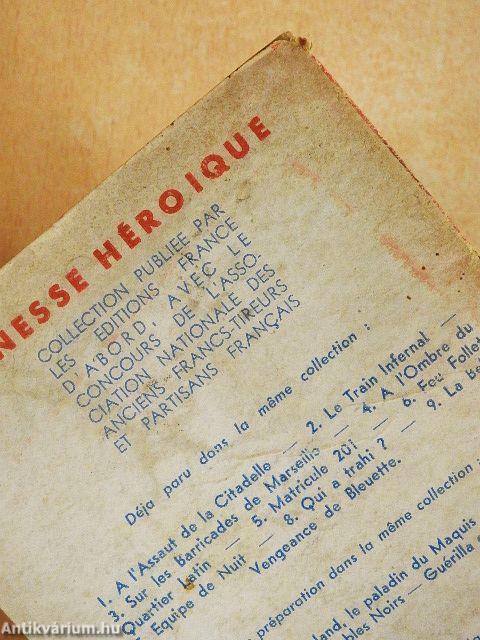 NESSE HÉROIQUE
COLLECTION PUBLIEE PAR
LES EDITIONS FRANCE
D'ABORD, AVEC LE
CONCOURS DE L'ASSO-
CIATION NATIONALE DES
ANCIENS FRANCS-TIREURS
ET PARTISANS FRANÇAIS
Déja paru dans la même collection :
1. A l'Assaut de la Citadelle — 2. Le Train Infernal —
3. Sur les Barricades de Marseille — 4. A l'Ombre du
Quartier Latin — 5. Matricule 201 — 6. Feu Follet
Equipe de Nuit — 8. Qui a trahi ? — 9. La
Vengeance de Bleuette.
préparation dans la même collection :
le paladin du Maquis
Noirs — Guérilla
Antikvárium.hu